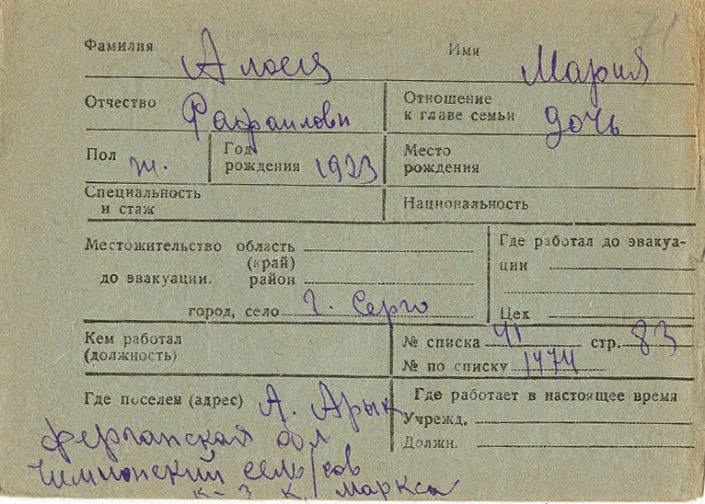 71
Фамилия Алоец Имя Мария
Отчество Рафаиловн Отношение к главе семьи дочь
Пол ж. Год рождения 1923 Место рождения
Специальность и стаж Национальность
Местожительство область (край) Где работал до эвакуации
до эвакуации. район
город, село г. Серго Цех
Кем работал (должность) № списка 41 стр. 83
№ по списку 1474
Где поселен (адрес) А. Арык Где работает в настоящее время
Ферганская обл Учрежд.
Чимионский сель/сов Должн.
к-з К. Маркса